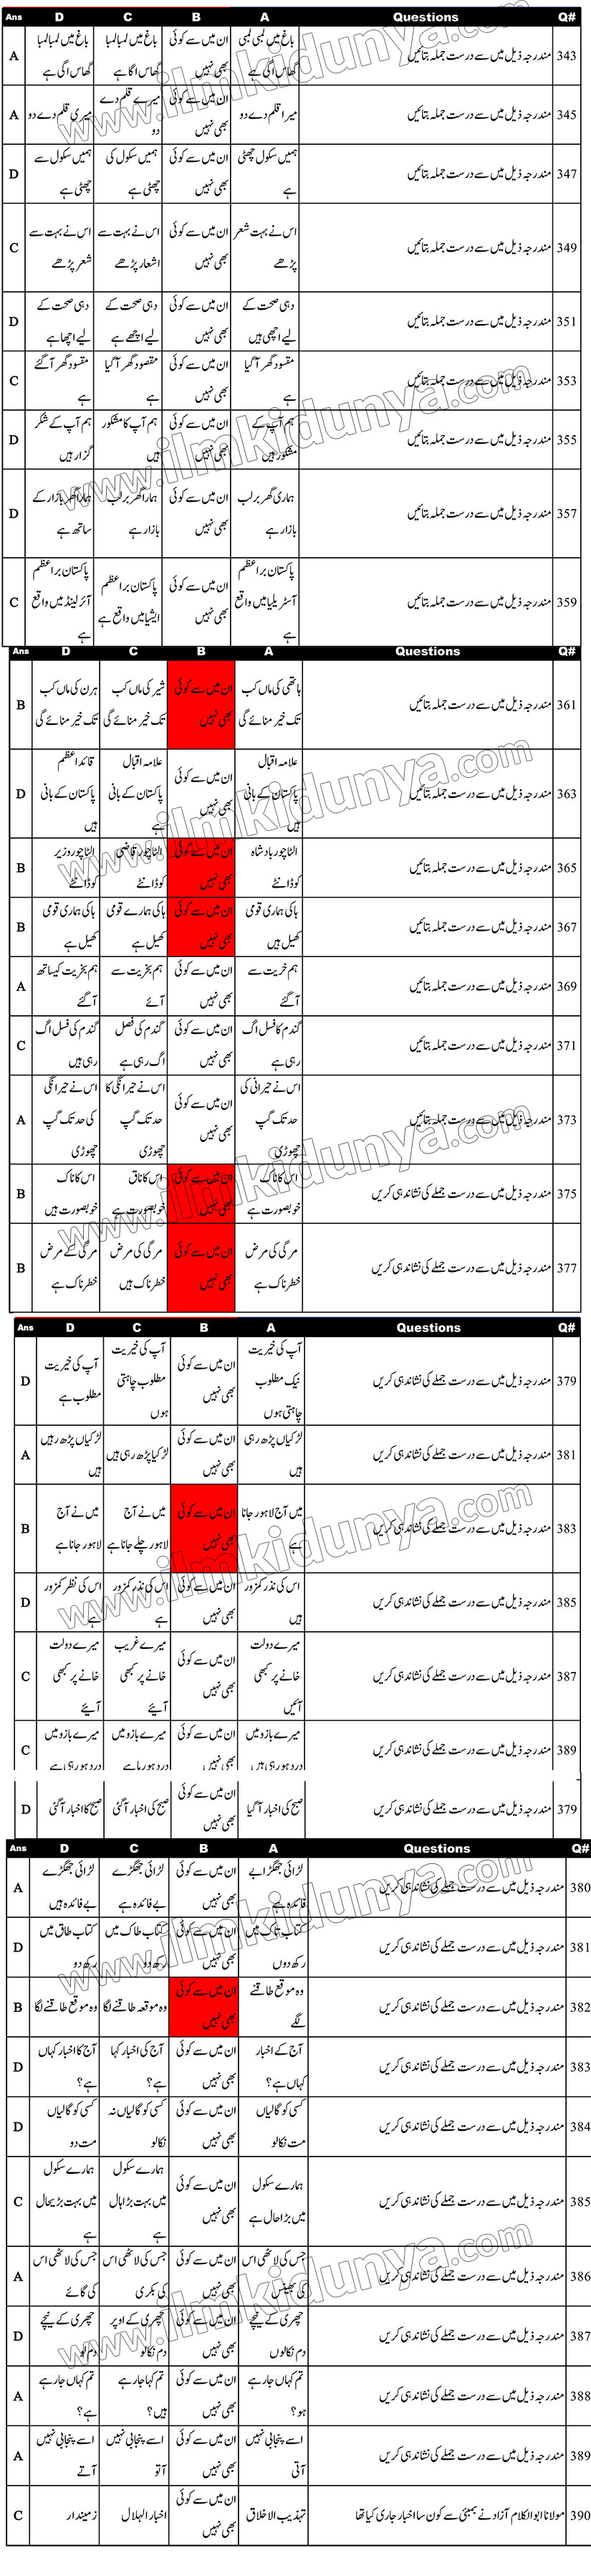 Q# Questions A B C D Ans
343 مندرجہ ذیل میں سے درست جملہ بتائیں باغ میں لمبی لمبی گھاس اگی ہے ان میں سے کوئی بھی نہیں باغ میں لمبا لمبا گھاس اگا ہے باغ میں لمبا لمبا گھاس اگی ہے A
345 مندرجہ ذیل میں سے درست جملہ بتائیں میرا قلم دے دو ان میں سے کوئی بھی نہیں میرے قلم دے دو میری قلم دے دو A
347 مندرجہ ذیل میں سے درست جملہ بتائیں ہمیں سکول چھٹی ہے ان میں سے کوئی بھی نہیں ہمیں سکول کی چھٹی ہے ہمیں سکول سے چھٹی ہے D
349 مندرجہ ذیل میں سے درست جملہ بتائیں اس نے بہت شعر پڑھے ان میں سے کوئی بھی نہیں اس نے بہت سے اشعار پڑھے اس نے بہت سے شعر پڑھے C
351 مندرجہ ذیل میں سے درست جملہ بتائیں دہی صحت کے لیے اچھی ہیں ان میں سے کوئی بھی نہیں دہی صحت کے لیے اچھے ہے دہی صحت کے لیے اچھا ہے D
353 مندرجہ ذیل میں سے درست جملہ بتائیں مقسود گھر آ گیا ہے ان میں سے کوئی بھی نہیں مقصود گھر آ گیا ہے مقسود گھر آ گئے ہے C
355 مندرجہ ذیل میں سے درست جملہ بتائیں ہم آپ کے مشکور ہیں ان میں سے کوئی بھی نہیں ہم آپ کا مشکور ہیں ہم آپ کے شکر گزار ہیں D
357 مندرجہ ذیل میں سے درست جملہ بتائیں ہماری گھر برلب بازار ہے ان میں سے کوئی بھی نہیں ہمارا گھر برلب بازار ہے ہمارا گھر بازار کے ساتھ ہے D
359 مندرجہ ذیل میں سے درست جملہ بتائیں پاکستان براعظم آسٹریلیا میں واقع ہے ان میں سے کوئی بھی نہیں پاکستان براعظم ایشیا میں واقع ہے پاکستان براعظم آئرلینڈ میں واقع ہے C
Q# Questions A B C D Ans
361 مندرجہ ذیل میں سے درست جملہ بتائیں ہاتھی کی ماں کب تک خیر منائے گی ان میں سے کوئی بھی نہیں شیر کی ماں کب تک خیر منائے گی ہرن کی ماں کب تک خیر منائے گی B
363 مندرجہ ذیل میں سے درست جملہ بتائیں علامہ اقبال پاکستان کے بانی ہیں ان میں سے کوئی بھی نہیں علامہ اقبال پاکستان کے بانی ہے قائداعظم پاکستان کے بانی ہیں D
365 مندرجہ ذیل میں سے درست جملہ بتائیں الٹا چور بادشاہ کو ڈانٹے ان میں سے کوئی بھی نہیں الٹا چور قاضی کو ڈانٹے الٹا چور وزیر کو ڈانٹے B
367 مندرجہ ذیل میں سے درست جملہ بتائیں ہاکی ہماری قومی کھیل ہیں ان میں سے کوئی بھی نہیں ہاکی ہمارے قومی کھیل ہے ہاکی ہماری قومی کھیل ہے B
369 مندرجہ ذیل میں سے درست جملہ بتائیں ہم خریت سے آ گئے ان میں سے کوئی بھی نہیں ہم بخریت سے آئے ہم بخریت کیساتھ آ گئے A
371 مندرجہ ذیل میں سے درست جملہ بتائیں گندم کا فسل اگ رہی ہے ان میں سے کوئی بھی نہیں گندم کی فصل اگ رہی ہے گندم کی فسل اگ رہی ہیں C
373 مندرجہ ذیل میں سے درست جملہ بتائیں اس نے حیرانی کی حد تک گپ چھوڑی ان میں سے کوئی بھی نہیں اس نے حیرانگی کا حد تک گپ چھوڑی اس نے حیرانگی کی حد تک گپ چھوڑی A
375 مندرجہ ذیل میں سے درست جملے کی نشاندہی کریں اس کا ناک خوبصورت ہے ان میں سے کوئی بھی نہیں اس کا ناق خوبصورت ہے اس کا ناک خوبصورت ہیں B
377 مندرجہ ذیل میں سے درست جملے کی نشاندہی کریں مرگی کی مرض خطرناک ہے ان میں سے کوئی بھی نہیں مرگی کی مرض خطرناک ہیں مرگی کے مرض خطرناک ہے B
Q# Questions A B C D Ans
379 مندرجہ ذیل میں سے درست جملے کی نشاندہی کریں آپ کی خیریت نیک مطلوب چاہتی ہوں ان میں سے کوئی بھی نہیں آپ کی خیریت مطلوب چاہتی ہوں آپ کی خیریت مطلوب ہے D
381 مندرجہ ذیل میں سے درست جملے کی نشاندہی کریں لڑکیاں پڑھ رہی ہیں ان میں سے کوئی بھی نہیں لڑکیا پڑھ رہی ہیں لڑکیاں پڑھ رہیں ہیں A
383 مندرجہ ذیل میں سے درست جملے کی نشاندہی کریں میں آج لاہور جانا ہے ان میں سے کوئی بھی نہیں میں نے آج لاہور چلے جانا ہے میں نے آج لاہور جانا ہے B
385 مندرجہ ذیل میں سے درست جملے کی نشاندہی کریں اس کی نذر کمزور ہیں ان میں سے کوئی بھی نہیں اس کی نذر کمزور ہے اس کی نظر کمزور ہے D
387 مندرجہ ذیل میں سے درست جملے کی نشاندہی کریں میرے دولت خانے پر کبھی آئیں ان میں سے کوئی بھی نہیں میرے غریب خانے پر کبھی آیئے میرے دولت خانے پر کبھی آیئے C
389 مندرجہ ذیل میں سے درست جملے کی نشاندہی کریں میرے بازو میں درد ہو رہی ہیں ان میں سے کوئی بھی نہیں میرے بازو میں درد ہو رہا ہے میرے بازو میں درد ہو رہی ہے C
379 مندرجہ ذیل میں سے درست جملے کی نشاندہی کریں صبح کی اخبار آ گیا ان میں سے کوئی بھی نہیں صبح کی اخبار آ گئی صبح کا اخبار آ گئی D
Q# Questions A B C D Ans
380 مندرجہ ذیل میں سے درست جملے کی نشاندہی کریں لڑائی جھگڑا بے فائدہ ہے ان میں سے کوئی بھی نہیں لڑائی جھگڑے بے فائدہ ہے لڑائی جھگڑے بے فائدہ ہیں A
381 مندرجہ ذیل میں سے درست جملے کی نشاندہی کریں کتاب تاک میں رکھ دوں ان میں سے کوئی بھی نہیں کتاب طاک میں رکھ دو کتاب طاق میں رکھ دو D
382 مندرجہ ذیل میں سے درست جملے کی نشاندہی کریں وہ موقع طاقنے لگے ان میں سے کوئی بھی نہیں وہ موقعہ طاقنے لگا وہ موقع طاقنے لگا B
383 مندرجہ ذیل میں سے درست جملے کی نشاندہی کریں آج کے اخبار کہاں ہے؟ ان میں سے کوئی بھی نہیں آج کی اخبار کہا ہے؟ آج کا اخبار کہاں ہے؟ D
384 مندرجہ ذیل میں سے درست جملے کی نشاندہی کریں کسی کو گالیاں مت نکالو ان میں سے کوئی بھی نہیں کسی کو گالیاں نہ نکالو کسی کو گالیاں مت دو D
385 مندرجہ ذیل میں سے درست جملے کی نشاندہی کریں ہمارے سکول میں بڑا حال ہے ان میں سے کوئی بھی نہیں ہمارے سکول میں بہت بڑا ہال ہے ہمارے سکول میں بہت بڑی حال ہے C
386 مندرجہ ذیل میں سے درست جملے کی نشاندہی کریں جس کی لاٹھی اس کی بھینس ان میں سے کوئی بھی نہیں جس کی لاٹھی اس کی بکری جس کی لاٹھی اس کی گائے A
387 مندرجہ ذیل میں سے درست جملے کی نشاندہی کریں چھری کے نیچے دم نکالوں ان میں سے کوئی بھی نہیں چھری کے اوپر دم نکالو چھری کے نیچے دم لو D
388 مندرجہ ذیل میں سے درست جملے کی نشاندہی کریں تم کہاں جا رہے ہو؟ ان میں سے کوئی بھی نہیں تم کہا جا رہے ہیں؟ تم کہاں جا رہے ہے؟ A
389 مندرجہ ذیل میں سے درست جملے کی نشاندہی کریں اسے پنجابی نہیں آتی ان میں سے کوئی بھی نہیں اسے پنجابی نہیں آتو اسے پنجابی نہیں آتے A
390 مولانا ابوالکلام آزاد نے بمبئی سے کون سا اخبار جاری کیا تھا تہذیب الاخلاق ان میں سے کوئی بھی نہیں اخبار الہلال زمیندار C
www.ilmkidunya.com
www.ilmkidunya.com
www.ilmkidunya.com
www.ilmkidunya.com
www.ilmkidunya.com
www.ilmkidunya.com
www.ilmkidunya.com